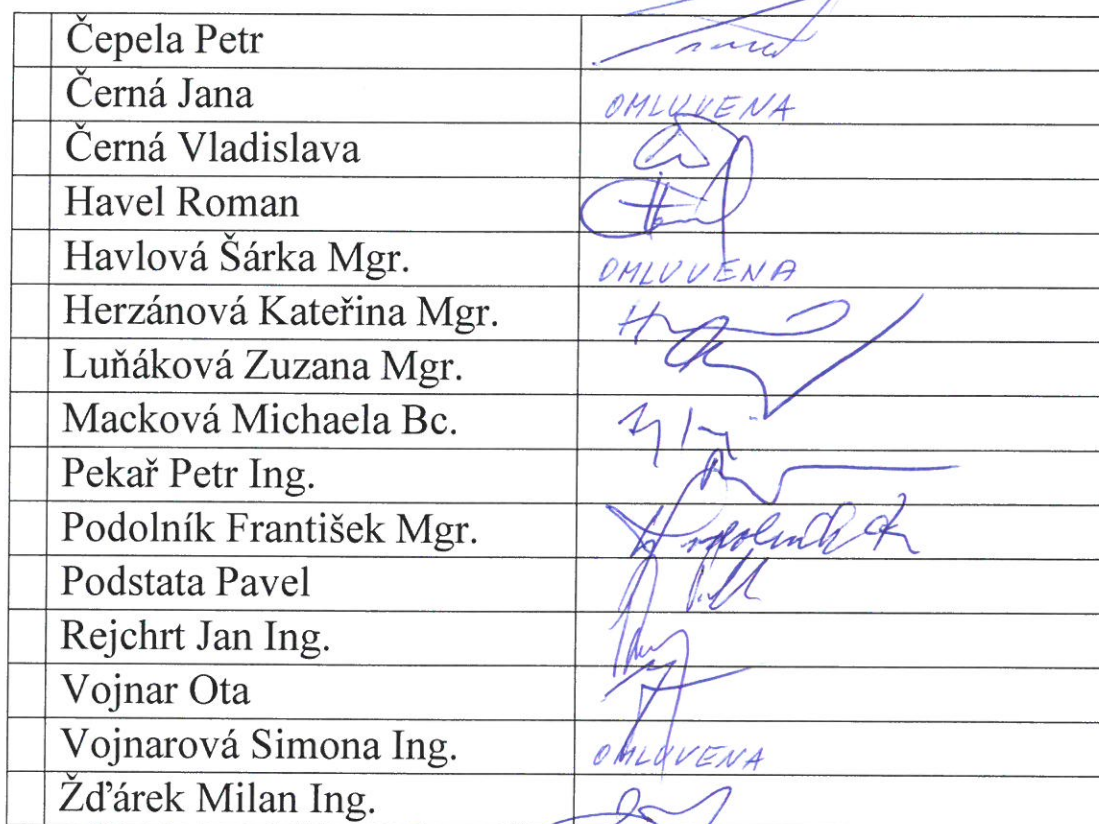 Čepela Petr
Černá Jana OMLUVENA
Černá Vladislava
Havel Roman
Havlová Šárka Mgr. OMLUVENA
Herzánová Kateřina Mgr.
Luňáková Zuzana Mgr.
Macková Michaela Bc.
Pekař Petr Ing.
Podolník František Mgr.
Podstata Pavel
Rejchrt Jan Ing.
Vojnar Ota
Vojnarová Simona Ing. OMLUVENA
Žďárek Milan Ing.